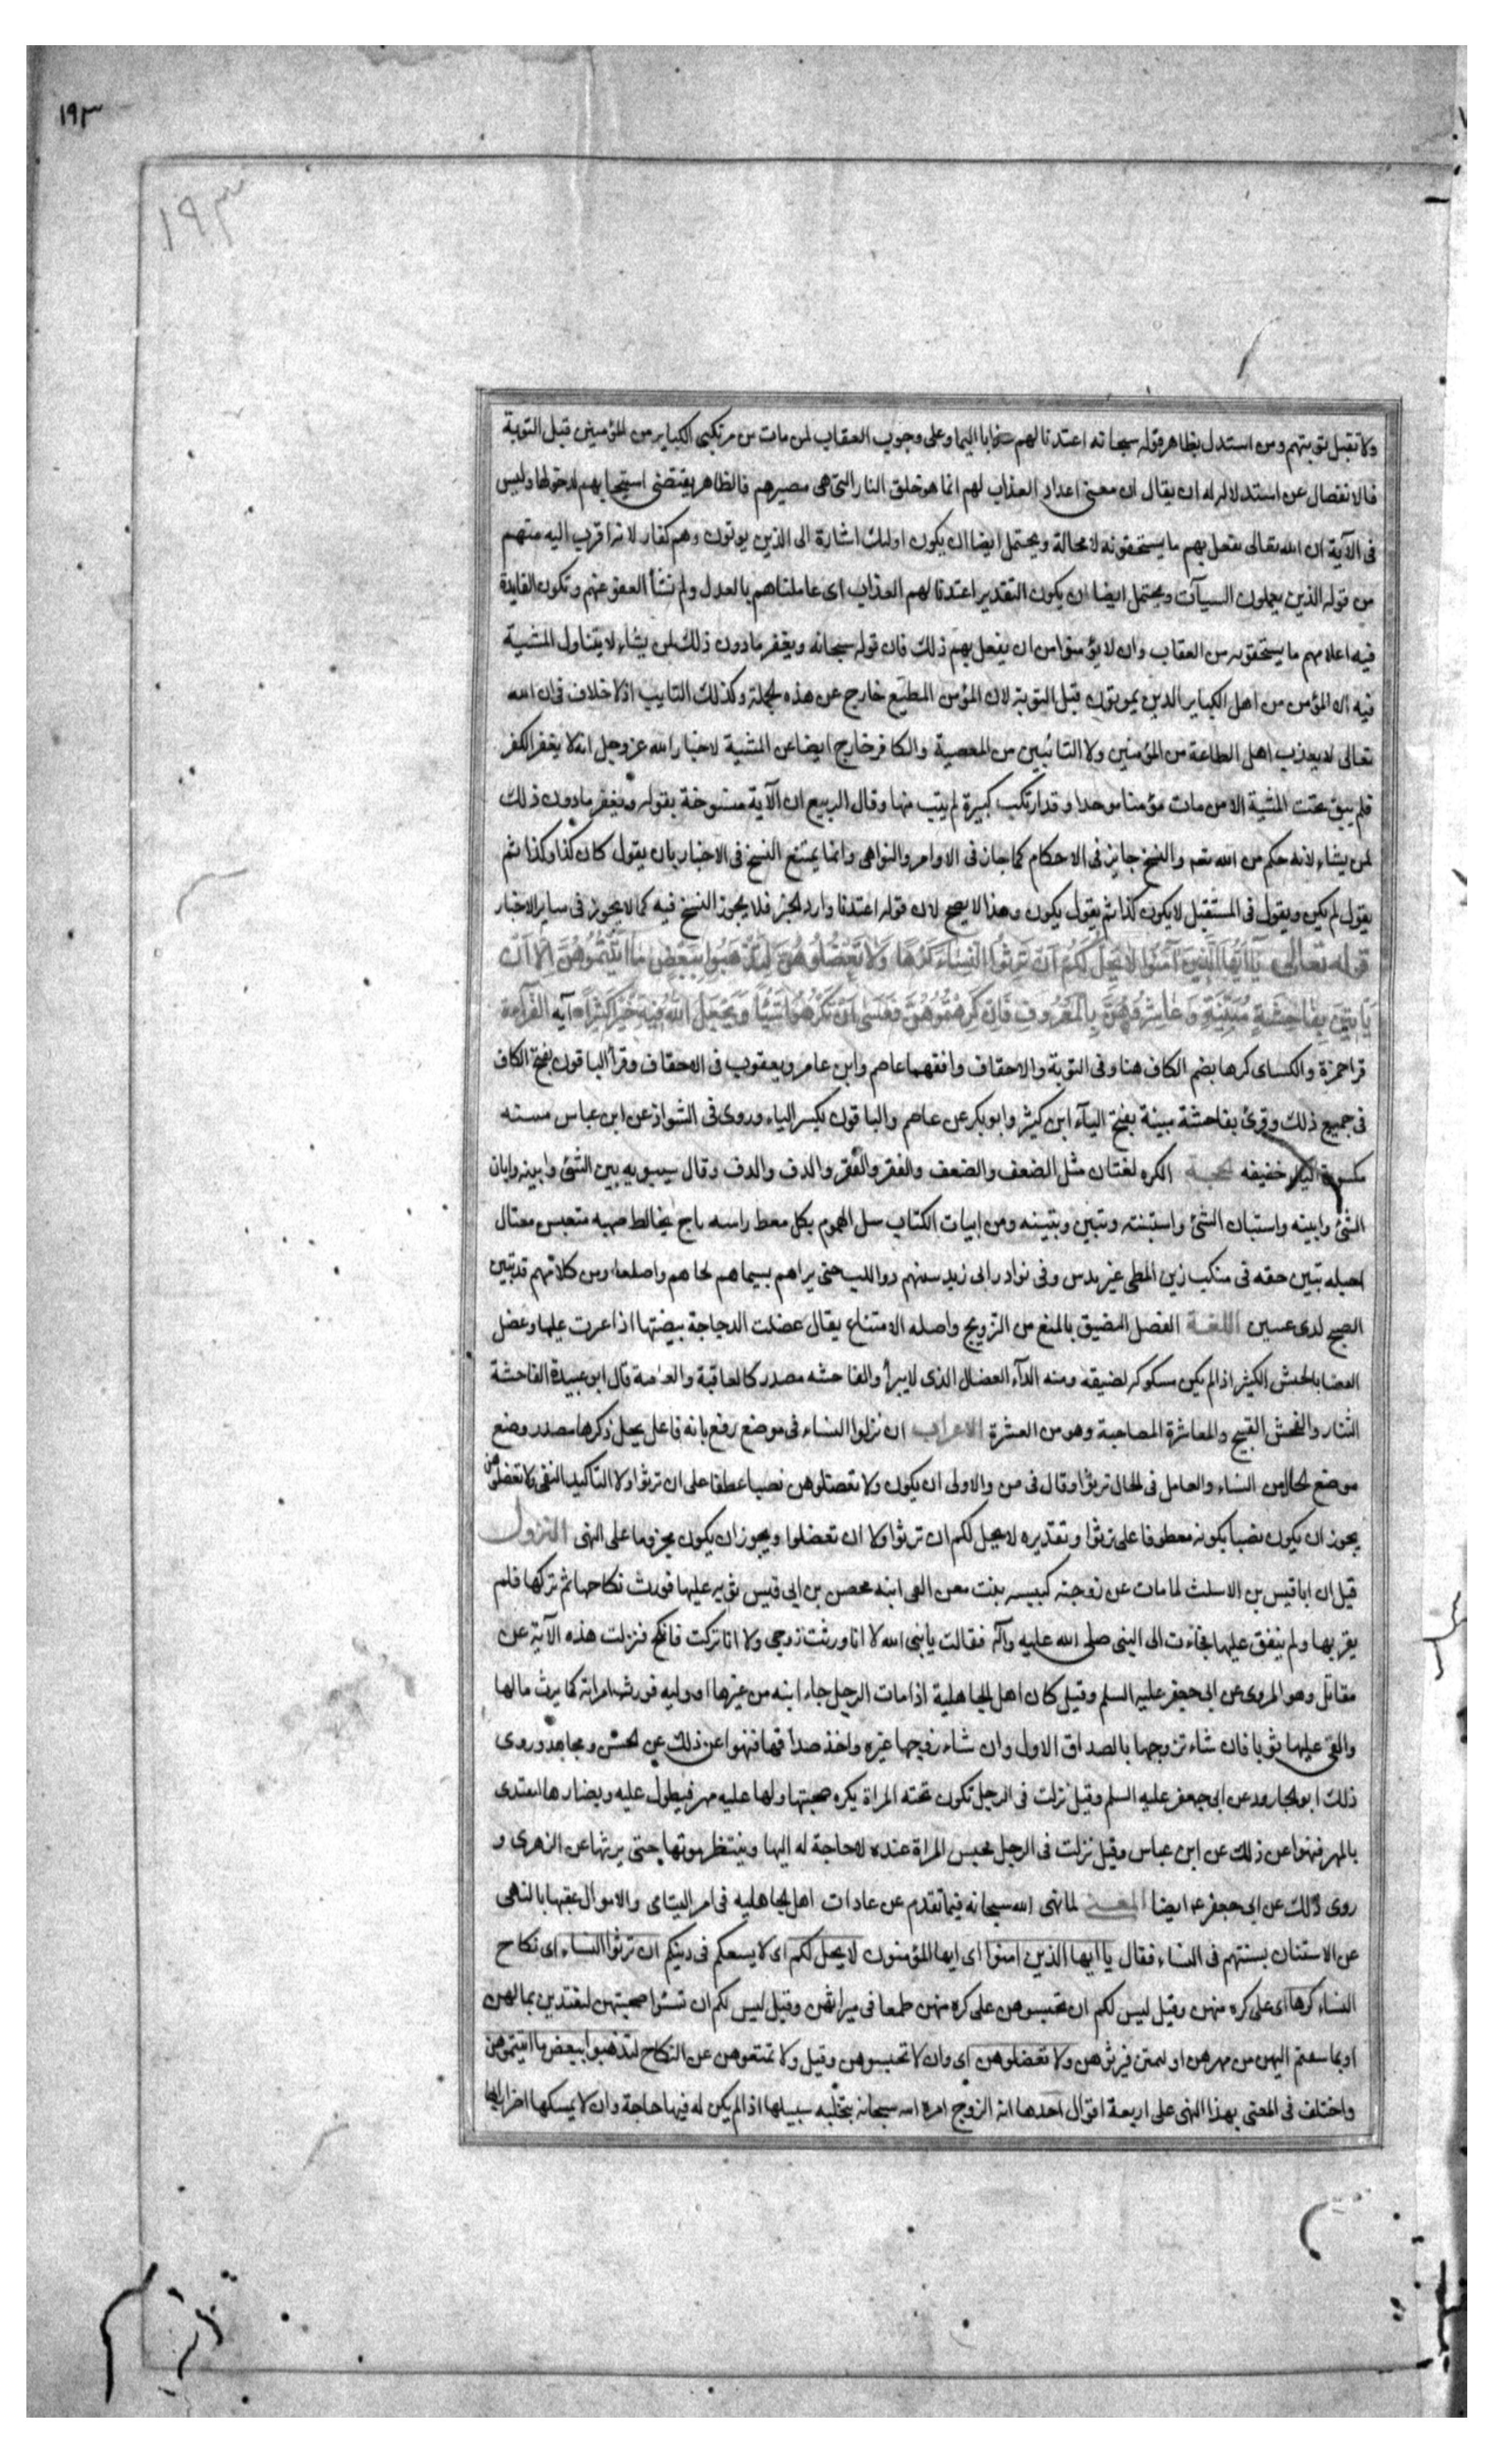 ١٩٣
١٩٣
ولا تقبل توبتهم ومن استدل بظاهر قوله سبحانه اعتدنا لهم عذابا اليما وعلى وجوب العقاب لمن مات من مرتكبى الكباير من المؤمنين قبل التوبة
فالانفصال عن استدلاله ان يقال ان معنى اعداد العذاب لهم انما هو خلق النار التى هى مصيرهم فالظاهر يقتضى استيجابهم لدخولها وليس
فى الآية ان الله تعالى يفعل بهم ما يستحقونه لا محالة ويحتمل ايضا ان يكون اولئك اشارة الى الذين يموتون وهم كفار لانه اقرب اليه منهم
من قوله الذين يعملون السيآت ويحتمل ايضا ان يكون التقدير اعتدنا لهم العذاب اى عاملناهم بالعدل ولم نشأ العفو عنهم وتكون الفايدة
فيه اعلامهم ما يستحقونه من العقاب وان لا يؤمنوا من ان يفعل بهم ذلك فان قوله سبحانه ويغفر مادون ذلك لمن يشاء لا يتناول المشية
فيه الا المؤمن من اهل الكباير الذين يموتون قبل التوبة لان المؤمن المطيع خارج عن هذه الجملة وكذلك التايب اذ لا خلاف فى ان الله
تعالى لا يعذب اهل الطاعة من المؤمنين ولا التائبين من المعصية والكافر خارج ايضا عن المشية لاخبار الله عز وجل انه لا يغفر الكفر
فلم يبق تحت المشية الا من مات مؤمنا موحدا وقد ارتكب كبيرة لم يتب منها وقال الربيع ان الآية منسوخة بقوله ويغفر مادون ذلك
لمن يشاء لانه حكم من الله تعم والنسخ جايز فى الاحكام كما جاز فى الاوامر والنواهى وانما يمتنع النسخ فى الاخبار بان يقول كان كذا وكذا ثم
يقول لم يكن ويقول فى المستقبل لا يكون كذا ثم يقول يكون وهذا لا يصح لان قوله اعتدنا وارد الخبر فلا يجوز النسخ فيه كما لا يجوز فى ساير الاخبار
قوله تعالى يَا اَيُّهَا الَّذِينَ آمَنُوا لَا يَحِلُّ لَكُمْ اَنْ تَرِثُوا النِّسَاءَ كَرْهًا وَلَا تَعْضُلُوهُنَّ لِتَذْهَبُوا بِبَعْضِ مَا اٰتَيْتُمُوهُنَّ اِلَّا اَنْ
يَاْتِينَ بِفَاحِشَةٍ مُبَيِّنَةٍ وَعَاشِرُوهُنَّ بِالْمَعْرُوفِ فَاِنْ كَرِهْتُمُوهُنَّ فَعَسَى اَنْ تَكْرَهُوا شَيْئًا وَيَجْعَلَ اللّٰهُ فِيهِ خَيْرًا كَثِيرًا آية القرآءة
قرا حمزة والكساى كرها بضم الكاف هنا وفى التوبة والاحقاف وافقهما عاصم وابن عامر ويعقوب فى الاحقاف وقرأ الباقون بفتح الكاف
فى جميع ذلك وقرئ بفاحشة مبينة بفتح اليآء ابن كثير وابوبكر عن عاصم والباقون بكسر الياء وروى فى الشواذ عن ابن عباس مبينه
مكسورة الباء خفيفه الحجة الكره لغتان مثل الضعف والضعف والفقر والفقر والدف والدف وقال سيبويه بين الشئ وابينه وابان
الشئ وابينه واستبان الشئ واستبنته وتبين وتبينه ومن ابيات الكتاب سل الهموم بكل معط راسه ناج مخالط صهبه متعبس مغتال
احبله تبين حقه فى منكب زين المطى عرندس وفى نوادر ابى زيد حتى يراهم بسيماهم لحاهم واصلعا ومن كلامهم قد تبين
الصبح لذى عينين اللغة العضل التضيق بالمنع من التزويج واصله الامتناع يقال عضلت الدجاجة ببيضتها اذا عرت عليها وعضل
الفضا بالجيش الكثير اذا لم يكن سكوكه لضيقه ومنه الدآء العضال الذى لا يبرأ والفاحشه مصدر كالعاقبة والعافية قال ابو عبيدة الفاحشة
الشنار والفحش القبيح والمعاشرة المصاحبة وهو من العشرة الاعراب ان ترثوا النساء فى موضع رفع بانه فاعل يحل وكرها مصدر وضع
موضع الحال من النساء والعامل فى الحال ترثوا وقال فى من والاولى ان يكون ولا تعضلوهن نصبا عطفا على ان ترثوا ولا لتاكيد النفى ولا تعضلوهن
يجوز ان يكون نصبا بكونه معطوفا على ترثوا وتقديره لا يحل لكم ان ترثوا ولا ان تعضلوا ويجوز ان يكون مجزوما على النهى النزول
قيل ان ابا قيس بن الاسلت لما مات عن زوجته كبيسه بنت معن القى ابنه محصن بن ابى قيس ثوبه عليها فورث نكاحها ثم تركها فلم
يقربها ولم ينفق عليها فجاءت الى النبى صلى الله عليه وآله فقالت يا نبى الله لا انا ورثت زوجى ولا انا تركت فانكح فنزلت هذه الآية عن
مقاتل وهو المروى عن ابى جعفر عليه السلم وقيل كان اهل الجاهلية اذا مات الرجل جاء ابنه من غيرها او وليه فورث امراته كما يرث مالها
والقى عليها ثوبا فان شاء تزوجها بالصداق الاول وان شاء زوجها غيره واخذ صداقها فنهوا عن ذلك عن الحسن ومجاهد وروى
ذلك ابو الجارود عن ابى جعفر عليه السلم وقيل نزلت فى الرجل تكون تحته المراة يكره صحبتها ولها عليه مهر فيطول عليه ويضارها لتفتدى
بالمهر فنهوا عن ذلك عن ابن عباس وقيل نزلت فى الرجل يحبس المراة عنده لا حاجة له اليها وينتظر موتها حتى يرثها عن الزهرى و
روى ذلك عن ابى جعفر ع ايضا المعنى لما نهى الله سبحانه فيما تقدم عن عادات اهل الجاهليه فى امر اليتامى والاموال عقبها بالنهى
عن الاستنان بسنتهم فى النساء فقال يا ايها الذين امنوا اى ايها المؤمنون لا يحل لكم اى لا يسعكم فى دينكم ان ترثوا النساء اى نكاح
النساء كرها اى على كره منهن وقيل ليس لكم ان تحبسوهن على كره منهن طمعا فى ميراثهن وقيل ليس لكم ان تسئوا صحبتهن ليفتدين بمالهن
او بما سقتم اليهن من مهرهن او ليمتن فترثوهن ولا تعضلوهن اى وان لا تحبسوهن وقيل ولا تمنعوهن عن النكاح لتذهبوا ببعض ما اتيتموهن
واختلف فى المعنى بهذا النهى على اربعة اقوال احدها انه الزوج امره الله سبحانه بتخليه سبيلها اذا لم يكن له فيها حاجة وان لا يمسكها اضرارا بها